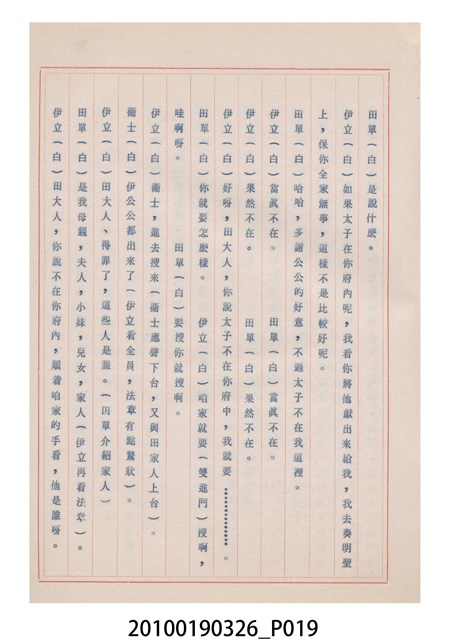 田單(白)是說什麽。
伊立(白)如果太子在你府內呢,我看你將他獻出來給我,我去奏明聖
上,保你全家無事,這樣不是比較好呢。
田單(白)哈哈,多謝公公的好意,不過太子不在我這裡。
伊立(白)當眞不在。 田單(白)當眞不在。
伊立(白)果然不在。 田單(白)果然不在。
伊立(白)好呀,田大人,你說太子不在你府中,我就要……………。
田單(白)你就要怎麽樣。 伊立(白)咱家就要(雙進門)搜啊,
哇啊呀。 田單(白)要搜你就搜啊。
伊立(白)衞士,進去搜來(衞士應聲下台,又與田家人上台)。
衞士(白)伊公公都出來了(伊立看全員,法章有點驚狀)。
伊立(白)田大人、得罪了,這些人是誰。(田單介紹家人)
田單(白)是我母親,夫人,小妹,兒女,家人(伊立再看法章)。
伊立(白)田大人,你說不在你府內,順着咱家的手看,他是誰呀。
20100190326_P019